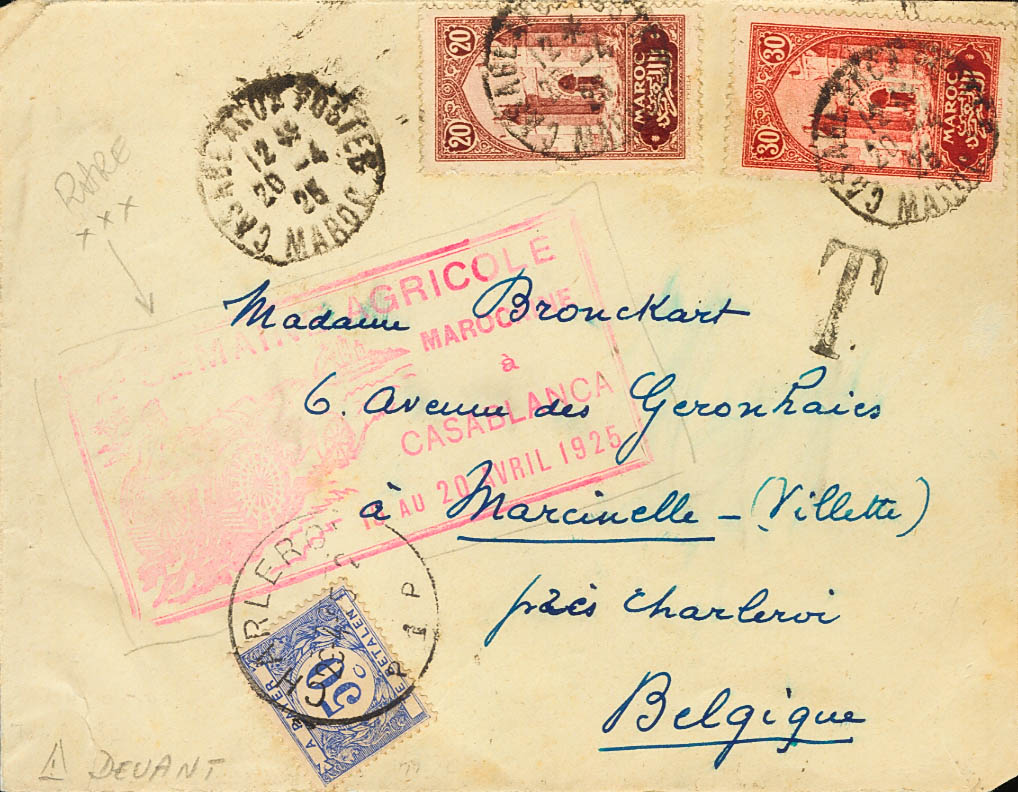 20 20 MAROC
30 30 MAROC
CASABLANCA POSTES
12 *
20 - 4
25
MAROC
RARE
xxx
T
SEMAINE AGRICOLE
MAROCAINE
à
CASABLANCA
AU 20 AVRIL 1925
Madame Bronckart
6. Avenue des Geronhaies
à Marcinelle - (Villette)
près Charleroi
Belgique
CHARLEROI
1 P
A PAYER
50 C
TE BETALEN
DEVANT